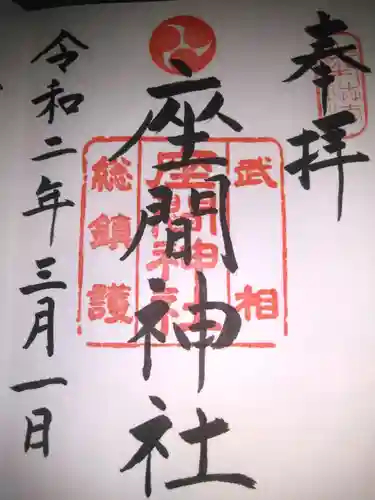 奉拝
武相
座間神社
総鎮護
座間神社
令和二年三月一日